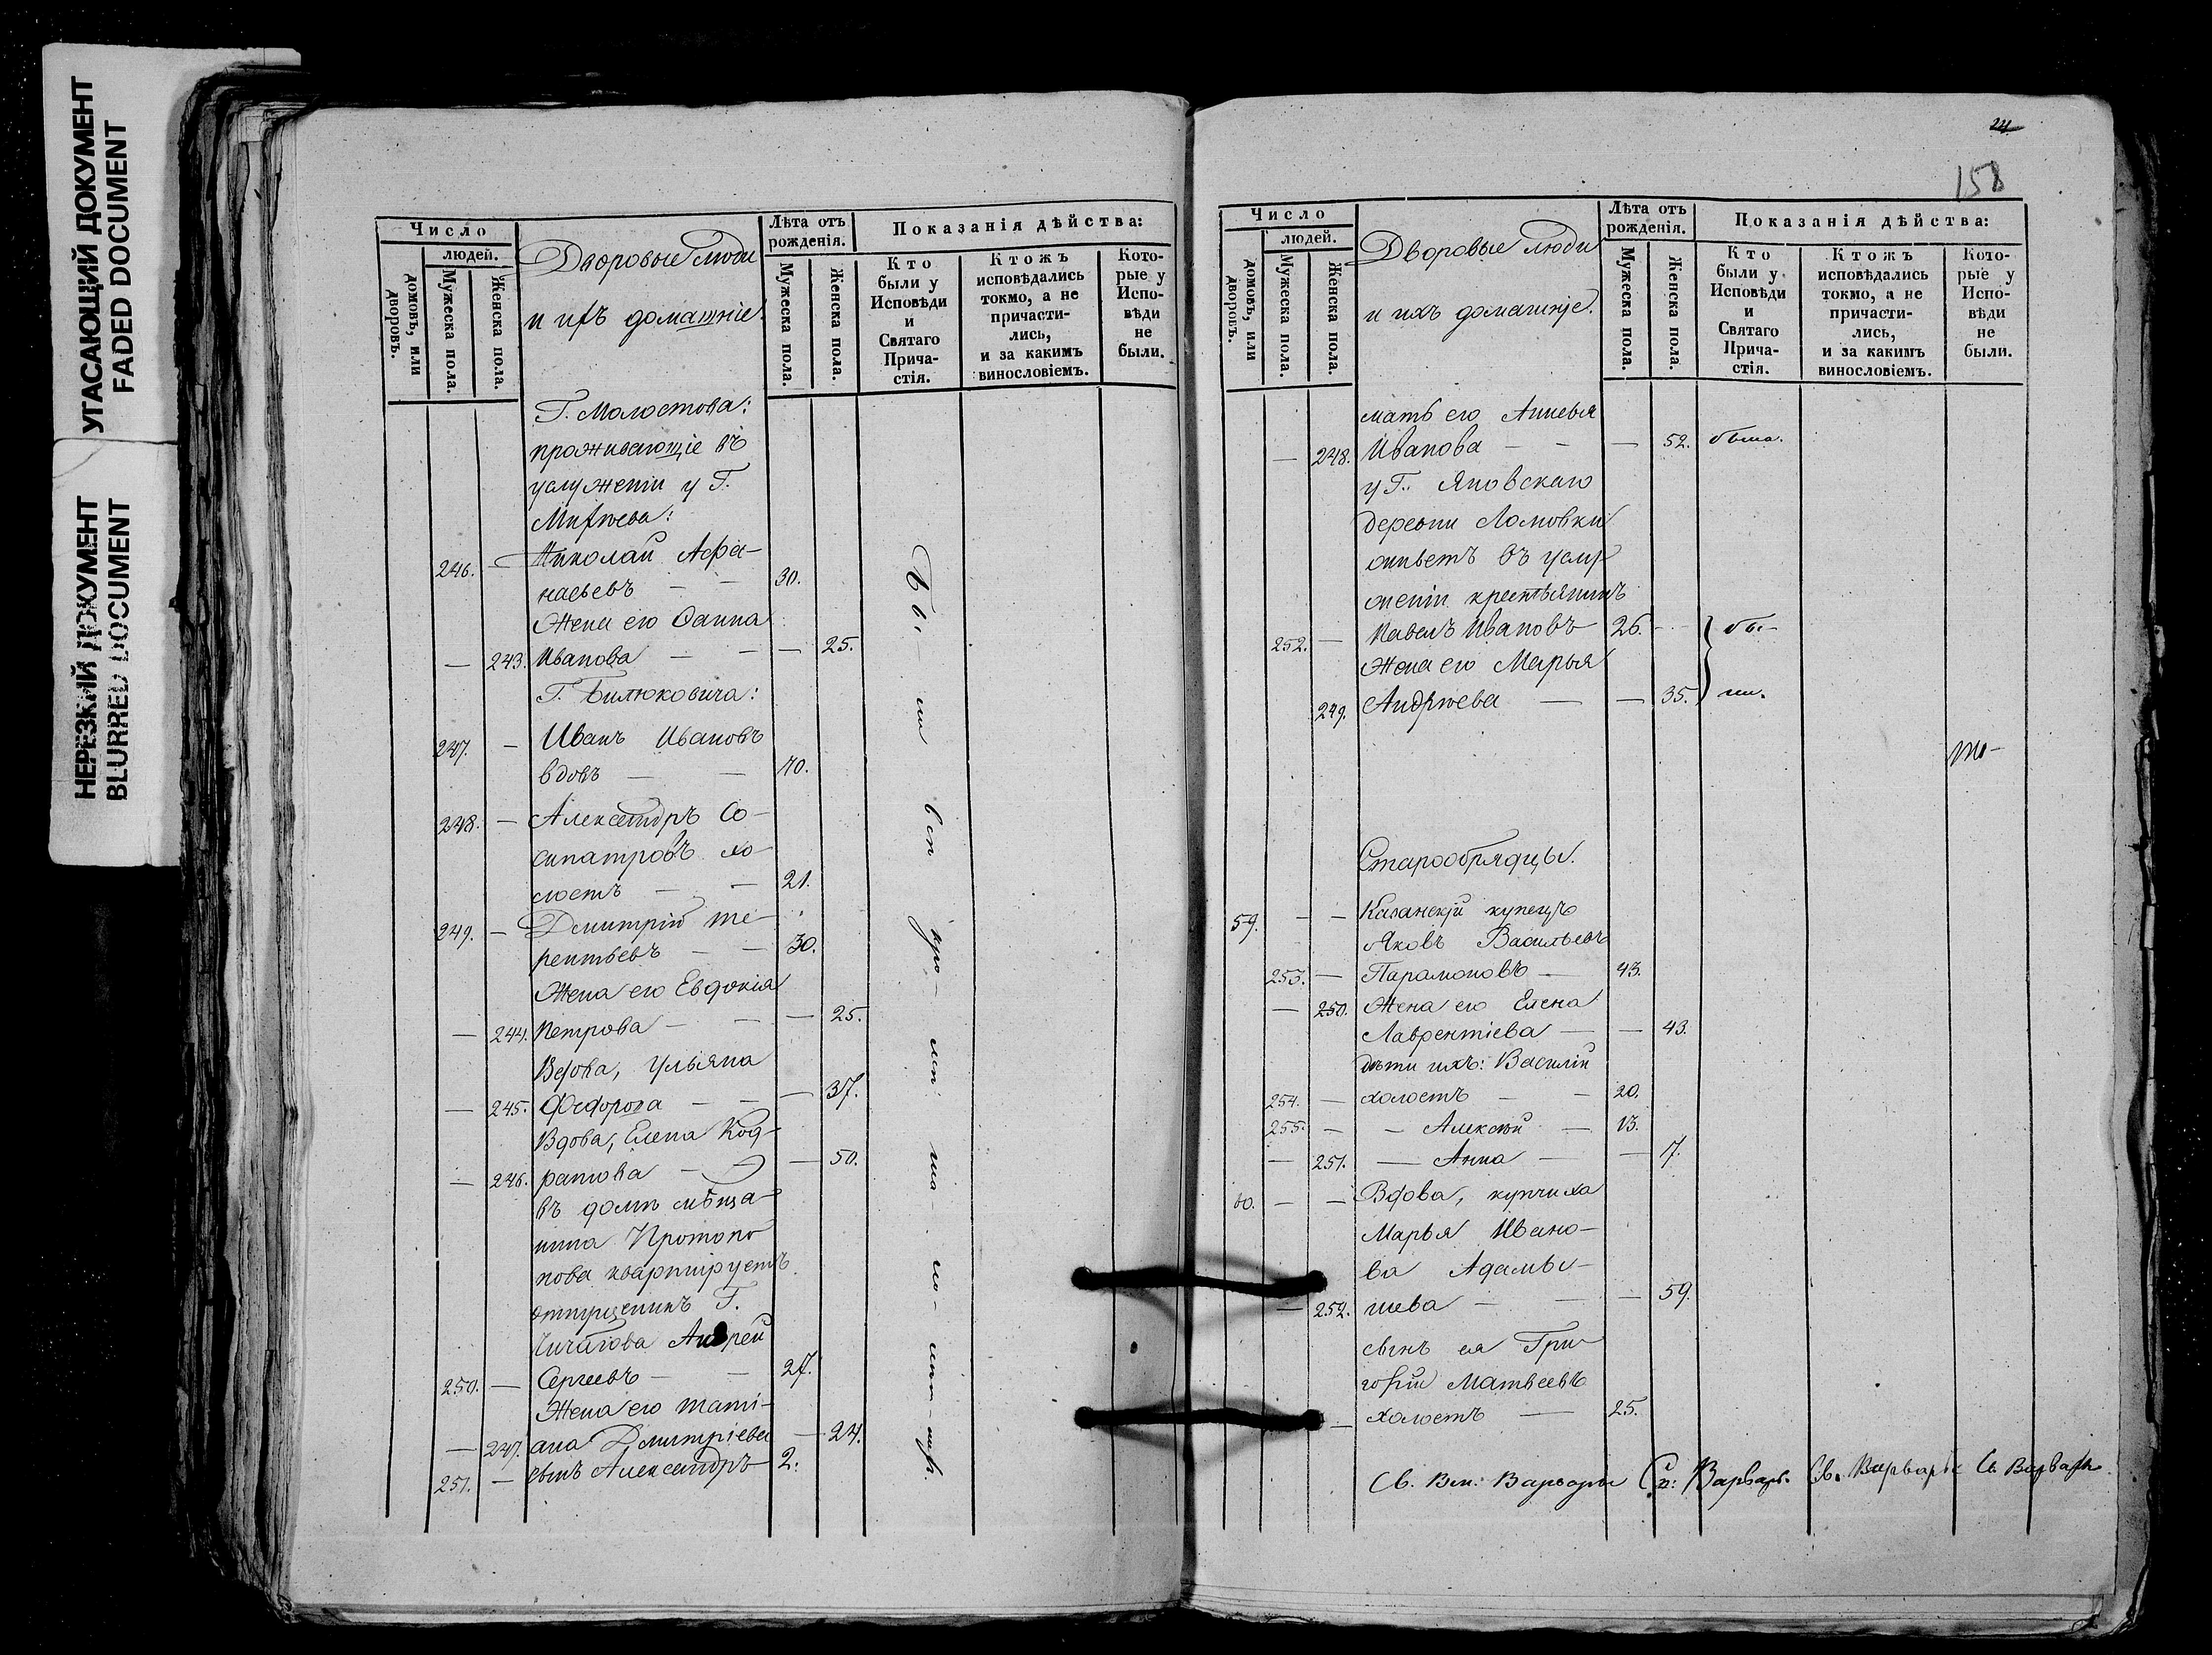 УГАСАЮЩИЙ ДОКУМЕНТ
FADED DOCUMENT
НЕРЕЗКИЙ ДОКУМЕНТ
BLURRED DOCUMENT
Число
людей.
домовъ, или дворовъ.
Мужеска пола.
Женска пола.
Дворовые люди
и ихъ домашніе.
Лѣта отъ рожденія.
Мужеска пола.
Женска пола.
Показанія дѣйства:
Кто были у Исповѣди и Святаго Прича-стія.
Ктожъ исповѣдались токмо, а не причасти-лись, и за какимъ винословіемъ.
Кото-рые у Испо-вѣди не были.
Г. Молостова:
проживающіе въ
услуженіи у Г.
Михѣева:
246. — Николай Афа-
насьевъ — — 30.
Жена его Оанна
— 243. Иванова — — — 25.
Г. Билюковича:
247. — Иванъ Ивановъ
вдовъ — — 40.
248. — Александръ Со-
сипатровъ хо-
лостъ — — 21.
249. — Дмитрій Те-
рентьевъ — — 30.
Жена его Евдокія
— 244. Петрова — — — 25.
Вдова, Ульяна
— 245. Федорова — — — 37.
Вдова, Елена Код-
— 246. ратова — — 50.
въ домѣ мѣща-
нина Протопо
пова квартируетъ
отпущенникъ Г.
Чичагова Андрей
250. — Сергеевъ — — 27.
Жена его Тати-
— 247. ана Дмитріева — 24.
251. — сынъ Александръ 2.
24
158
Число
людей.
домовъ, или дворовъ.
Мужеска пола.
Женска пола.
Дворовые люди
и ихъ домашніе.
Лѣта отъ рожденія.
Мужеска пола.
Женска пола.
Показанія дѣйства:
Кто были у Исповѣди и Святаго Прича-стія.
Ктожъ исповѣдались токмо, а не причасти-лись, и за какимъ винословіемъ.
Кото-рые у Испо-вѣди не были.
мать его Аннеья
— 248. Иванова — — — 52. была.
у Г. Яновскаго
деревни Ломовки
живетъ въ услу
женіи крестьянинъ
252. — Павелъ Ивановъ 26. — бы-
Жена его Марья
249. Андрѣева — — 35. ли.
Старообрядцы.
59. — — Казанскій купецъ
Яковъ Васильевъ
253. — Парамоновъ — 43.
— 250. Жена его Елена
Лаврентіева — — 43.
дѣти ихъ: Василій
254. — холостъ — — 20.
255. — — Алексѣй — 13.
— 251. — Анна — — 7.
60. — — Вдова, купчиха
Марья Ивано-
ва Адамы-
— 252. шева — — — 59.
сынъ ея Гри-
горій Матвеевъ
— холостъ — 25.
Св. Вм: Варвары